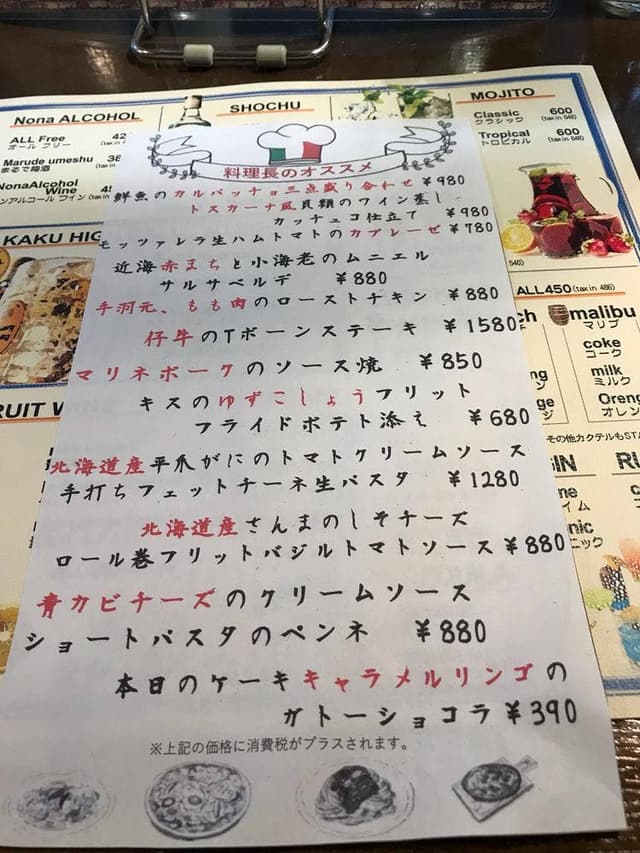 Nona ALCOHOL
ALL Free
オール フリー
Marude umeshu
まるで梅酒
NonaAlcohol
Wine
ンアルコール ワイン
SHOCHU
MOJITO
Classic 600
クラシック (tax in 648)
Tropical 600
トロピカル (tax in 648)
料理長のオススメ
鮮魚のカルパッチョ三点盛り合わせ ¥980
トスカーナ風貝類のワイン蒸し
カッチュコ仕立て ¥980
モッツァレラ生ハムトマトのカプレーゼ ¥780
近海赤まちと小海老のムニエル
サルサベルデ ¥880
手羽元、もも肉のローストチキン ¥880
仔牛のTボーンステーキ ¥1580
マリネポークのソース焼 ¥850
キスのゆずこしょうフリット
フライドポテト添え ¥680
北海道産平爪がにのトマトクリームソース
手打ちフェットチーネ生パスタ ¥1280
北海道産さんまのしそチーズ
ロール巻フリットバジルトマトソース ¥880
青カビチーズのクリームソース
ショートパスタのペンネ ¥880
本日のケーキキャラメルリンゴの
ガトーショコラ ¥390
※上記の価格に消費税がプラスされます。
KAKU HIG
RUIT W
540)
ALL450 (tax in 486)
malibu
マリブ
coke
コーク
milk
ミルク
Oreng
オレン
その他カクテルもSTA